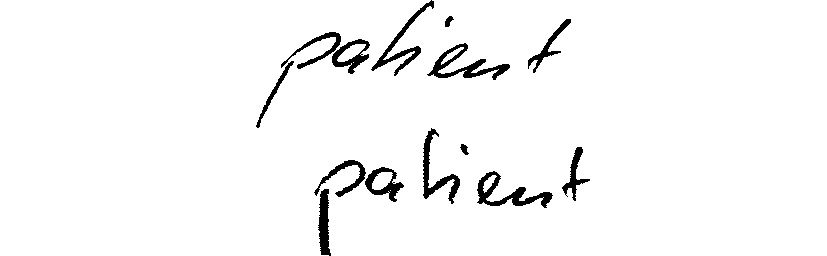 patient
patient